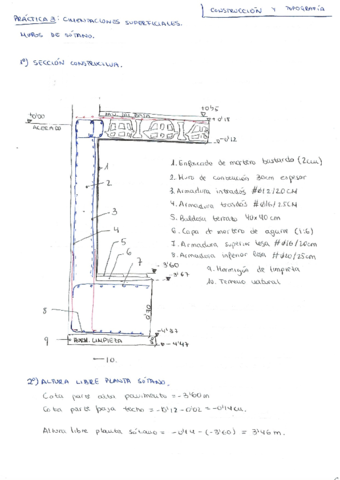 CONSTRUCCIÓN Y TOPOGRAFÍA
PRÁCTICA 3: CIMENTACIONES SUPERFICIALES.
MUROS DE SÓTANO.
1º) SECCIÓN CONSTRUCTIVA.
±0'00
ACERADO
+0'18
-0'12
1
2
3
4
5
6
7
8
9
10.
-3'60
-3'67
-4'47
HORM. LIMPIEZA
1. Enfoscado de mortero bastardo (2cm)
2. Muro de contención 30cm espesor
3. Armadura intradós #Ø12/20CM
4. Armadura trasdós #Ø16/25CM
5. Baldosa terrazo 40x40cm
6. Capa de mortero de agarre (1:6)
7. Armadura superior losa #Ø16/20cm
8. Armadura inferior losa #Ø20/25cm
9. Hormigón de limpieza
10. Terreno natural
2º) ALTURA LIBRE PLANTA SÓTANO.
Cota parte alta pavimento = -3'60 m
Cota parte baja techo = -0'12 - 0'02 = -0'14 m.
Altura libre planta sótano = -0'14 - (-3'60) = 3'46 m.